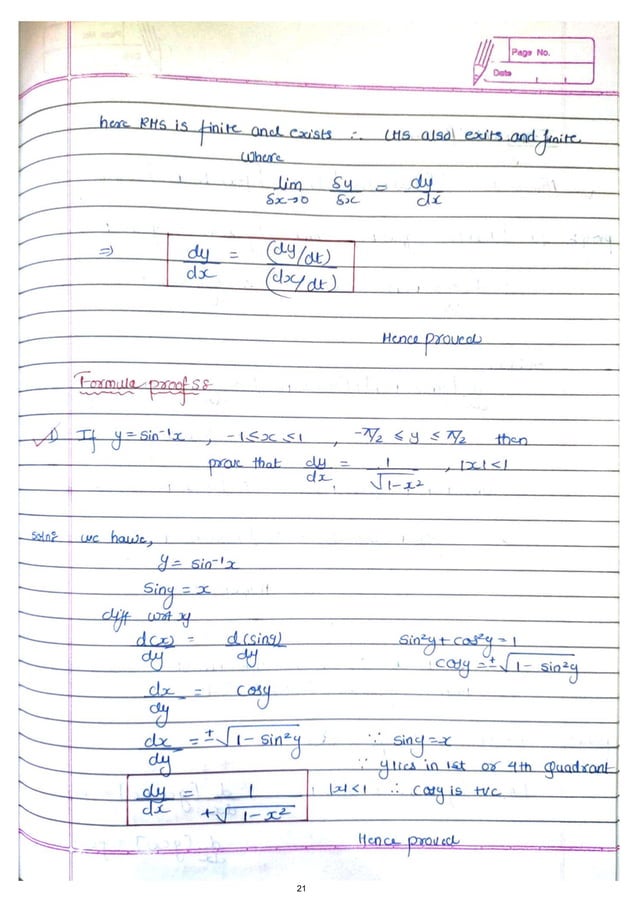 Page No.
Date
here RHS is finite and exists ∴ LHS also exits and finite
where
lim δx→0 δy/δx = dy/dx
⇒ dy/dx = (dy/dt)/(dx/dt)
Hence proved
Formula proofs :
1) If y = sin⁻¹x , -1 ≤ x ≤ 1 , -π/2 ≤ y ≤ π/2 then
prove that dy/dx = 1/√1-x² , |x| < 1
Soln: we have,
y = sin⁻¹x
siny = x
diff wrt y
d(x)/dy = d(siny)/dy sin²y + cos²y = 1
cosy = ±√1 - sin²y
dx/dy = cosy
dx/dy = ±√1 - sin²y ∵ siny = x
∵ y lies in 1st or 4th Quadrant
dy/dx = 1/+√1-x² |x| < 1 ∴ cosy is +vc
Hence proved
21